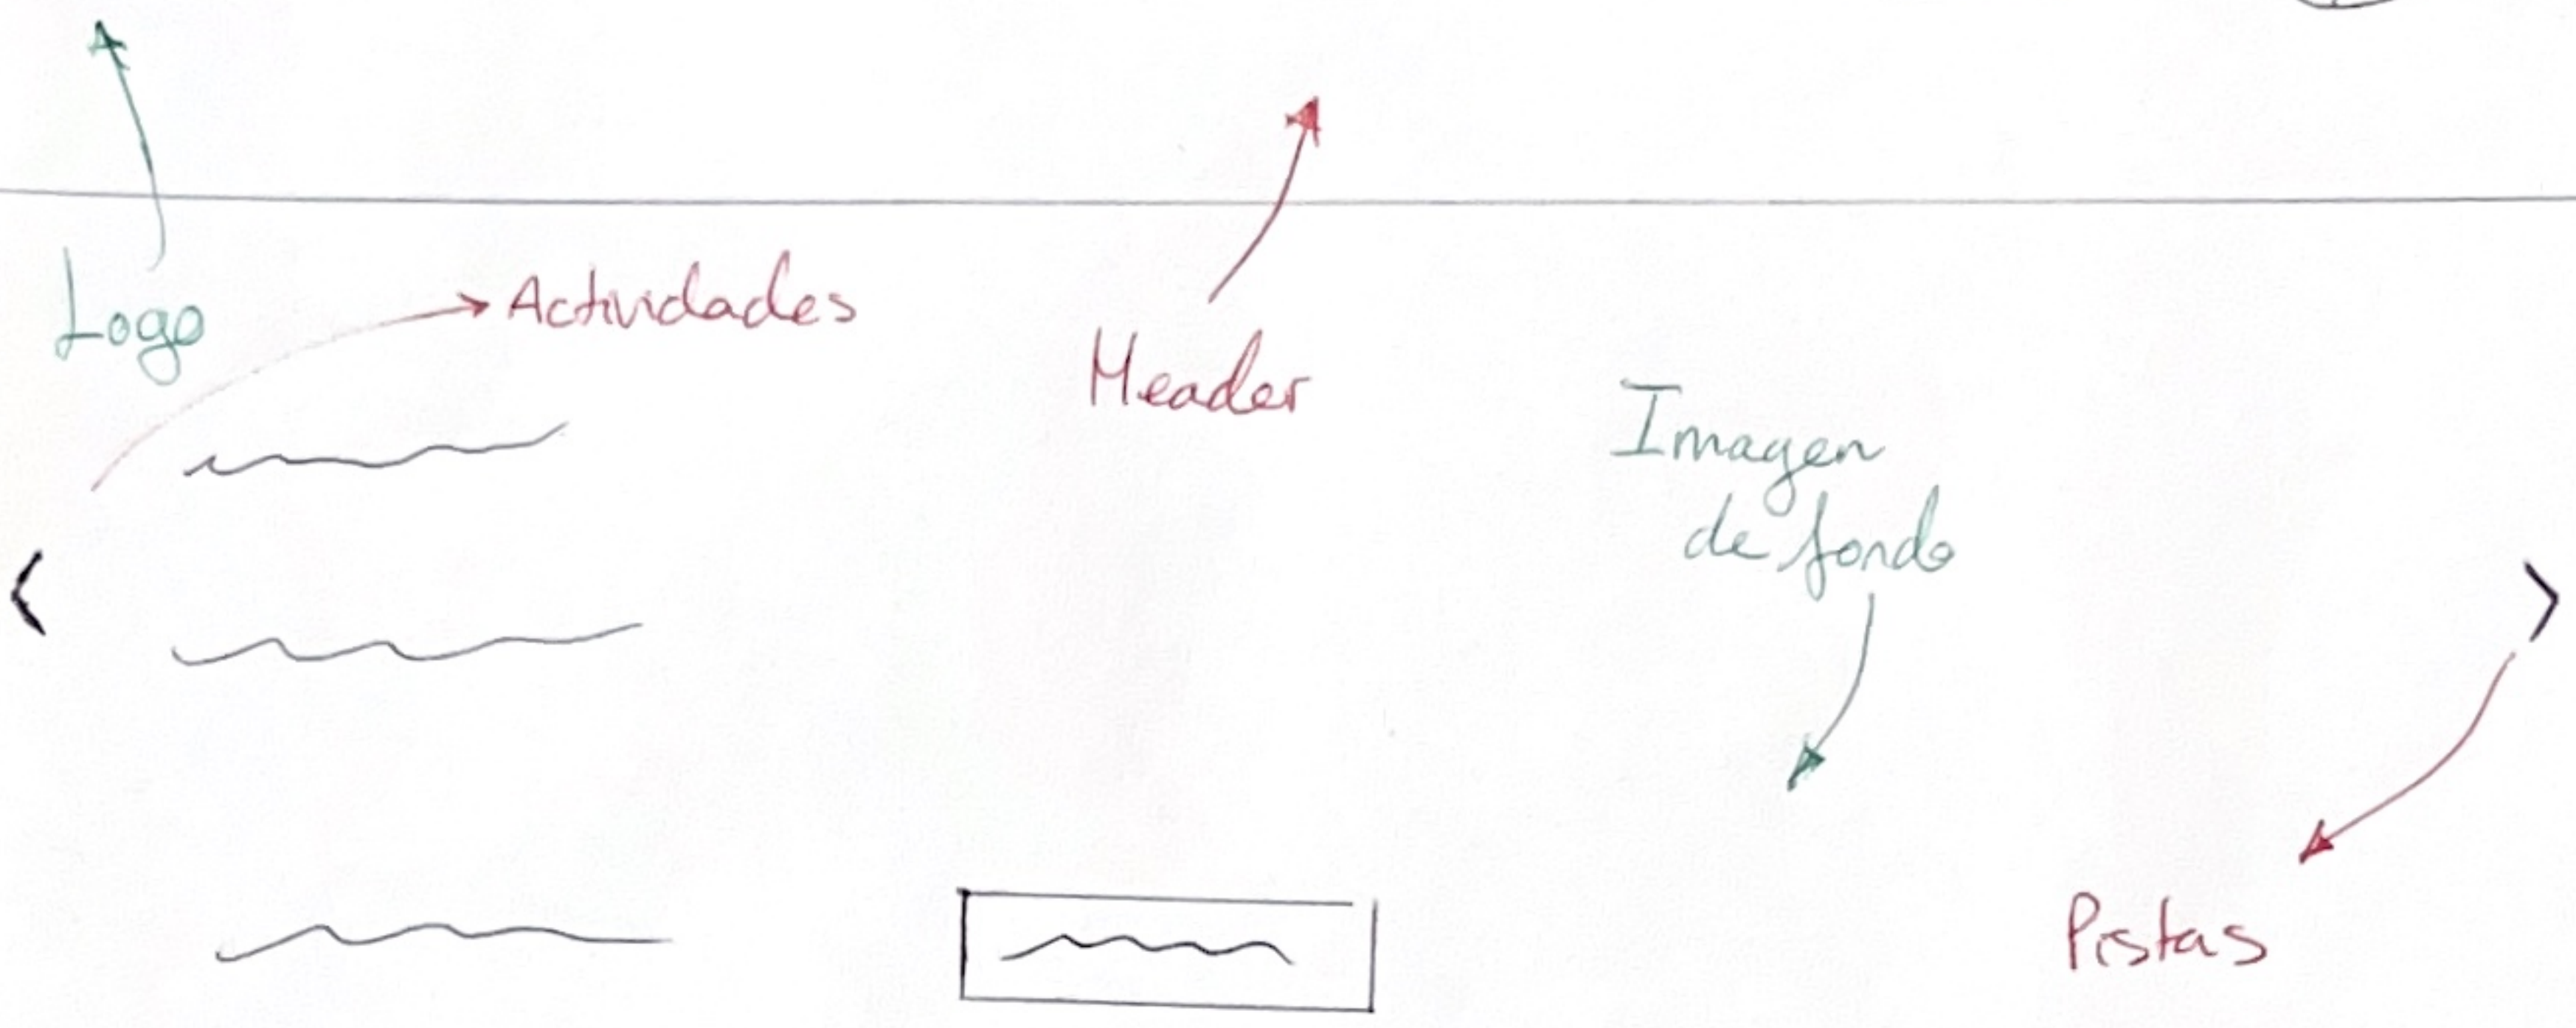 Logo
Actividades
Header
Imagen
de fondo
Pistas